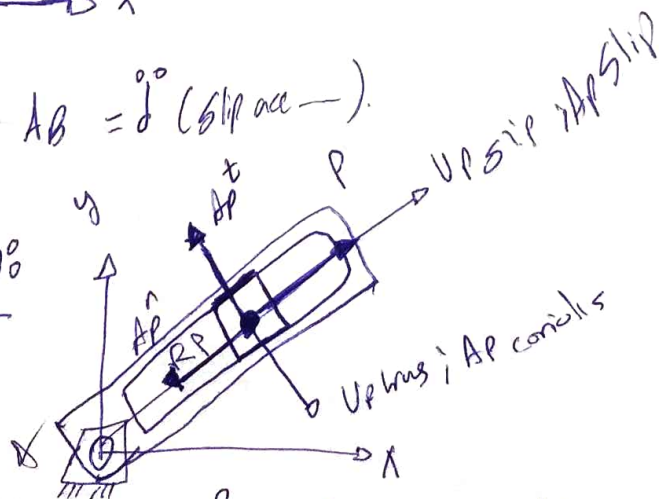 x
AB = d̈ (Slip acc —).
y
Ap^t
P
Vp Slip ; Ap Slip
Ap^n
Rp
Ap coriolis
x